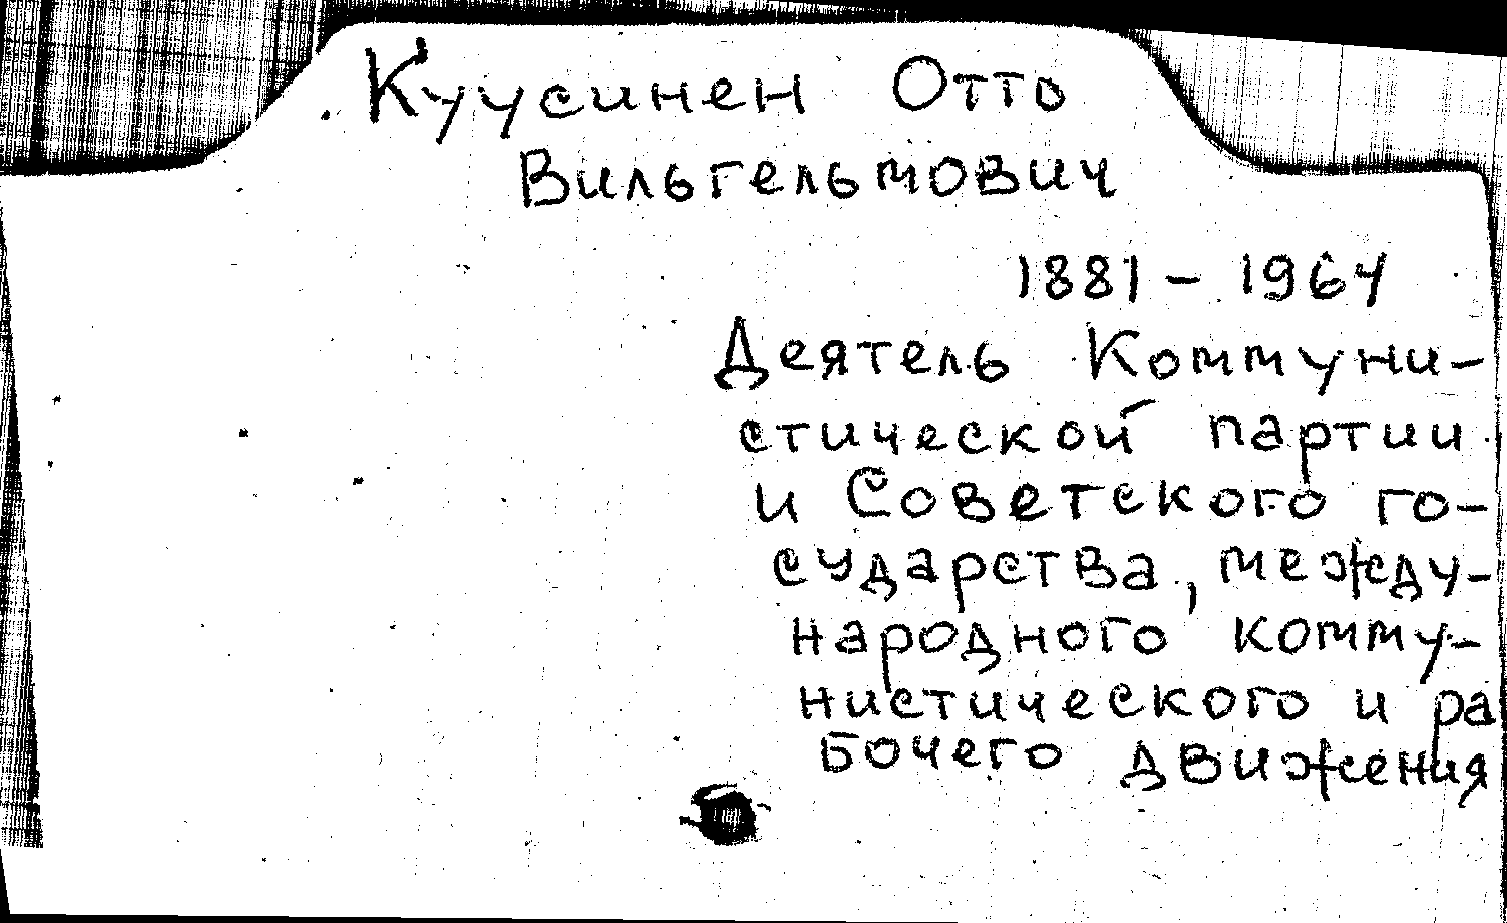 Куусинен Отто
Вильгельмович
1881 - 1964
Деятель Коммуни-
стической партии
и Советского го-
сударства, между-
народного комму-
нистического и ра
бочего движения